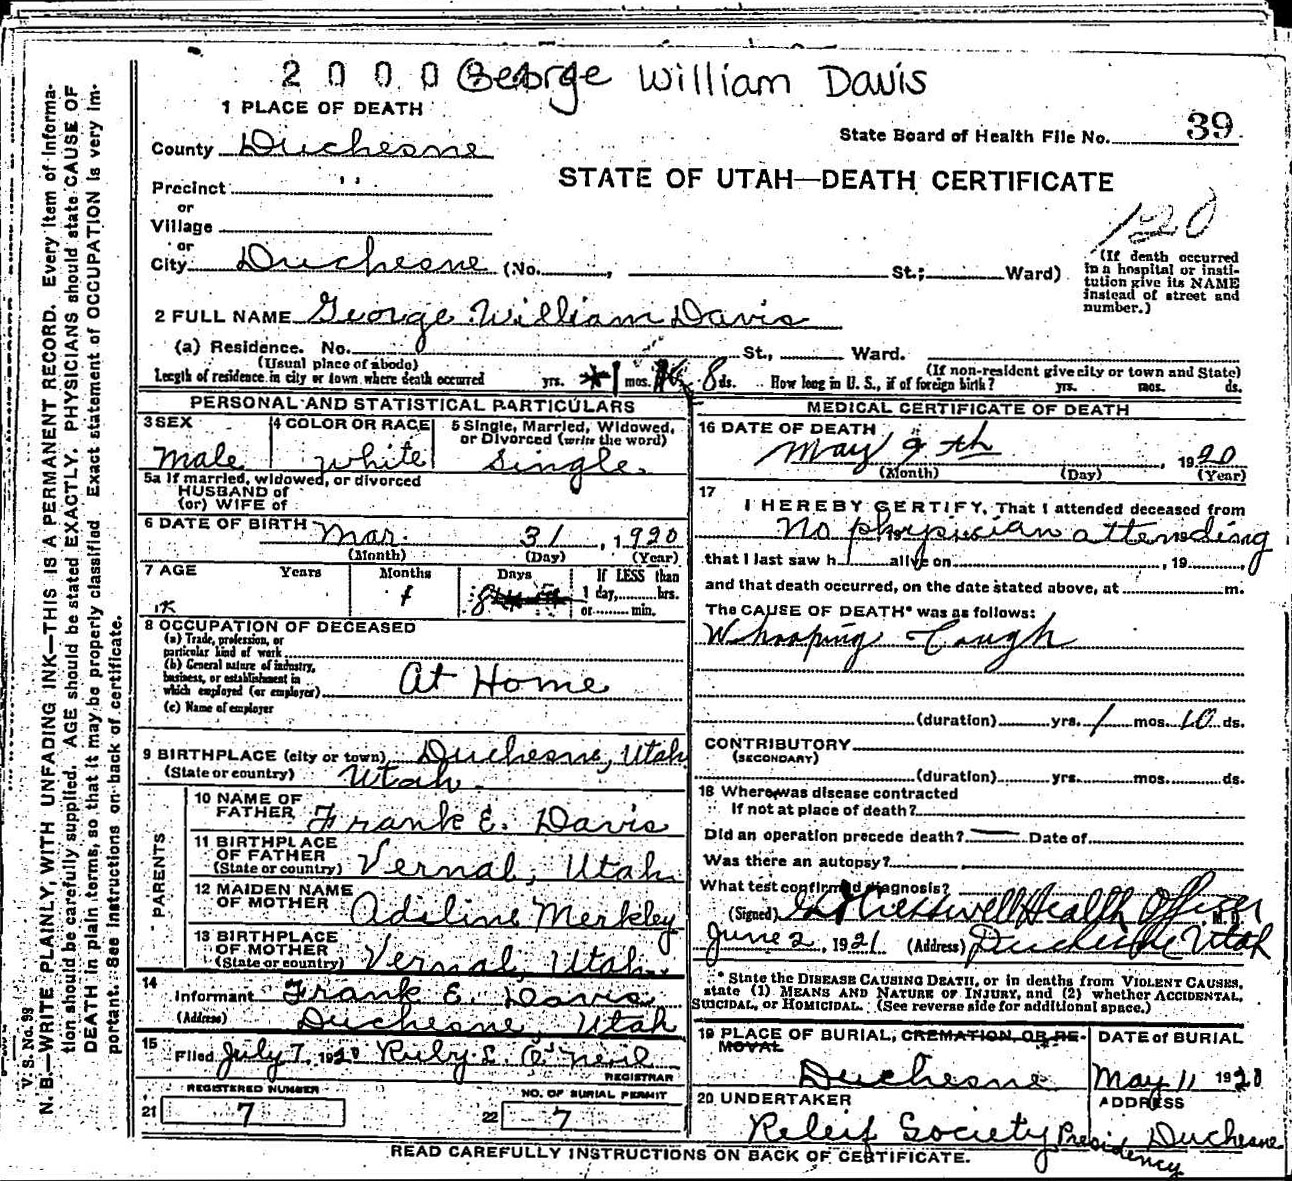 2000 George William Davis
1 PLACE OF DEATH
State Board of Health File No. 39
County Duchesne
STATE OF UTAH—DEATH CERTIFICATE
Precinct "
or
Village
120
or
City Duchesne (No. , St.; Ward)
(If death occurred in a hospital or insti-
tution give its NAME
instead of street and
number.)
2 FULL NAME George William Davis
(a) Residence. No. St., Ward.
(Usual place of abode) (If non-resident give city or town and State)
Length of residence in city or town where death occurred yrs. 1 mos. 8 ds. How long in U. S., if of foreign birth? yrs. mos. ds.
PERSONAL AND STATISTICAL PARTICULARS
3 SEX
Male
4 COLOR OR RACE
White
5 Single, Married, Widowed,
or Divorced (write the word)
Single.
5a If married, widowed, or divorced
HUSBAND of
(or) WIFE of
6 DATE OF BIRTH Mar. 31, 1920
(Month) (Day) (Year)
7 AGE Years Months Days If LESS than
1 day, hrs.
or min.
1 8
8 OCCUPATION OF DECEASED
(a) Trade, profession, or
particular kind of work
(b) General nature of industry,
business, or establishment in
which employed (or employer) At Home
(c) Name of employer
9 BIRTHPLACE (city or town) Duchesne, Utah
(State or country) Utah.
PARENTS
10 NAME OF
FATHER Frank E. Davis
11 BIRTHPLACE
OF FATHER
(State or country) Vernal, Utah
12 MAIDEN NAME
OF MOTHER Adeline Merkley
13 BIRTHPLACE
OF MOTHER
(State or country) Vernal, Utah.
14
Informant Frank E. Davis
(Address) Duchesne, Utah
15
Filed July 7, 1920 Ruby E. O'Neil
REGISTRAR
REGISTERED NUMBER
21 7
NO. OF BURIAL PERMIT
22 7
MEDICAL CERTIFICATE OF DEATH
16 DATE OF DEATH
May 9th, 1920
(Month) (Day) (Year)
17
I HEREBY CERTIFY, That I attended deceased from
No physician attending
that I last saw h alive on , 19 ,
and that death occurred, on the date stated above, at m.
The CAUSE OF DEATH* was as follows:
Whooping Cough
(duration) yrs. 1 mos. 10 ds.
CONTRIBUTORY
(SECONDARY)
(duration) yrs. mos. ds.
18 Where was disease contracted
If not at place of death?
Did an operation precede death? — Date of
Was there an autopsy?
What test confirmed diagnosis?
(Signed) Cresswell Health Officer M. D.
June 2, 1921 (Address) Duchesne Utah
* State the DISEASE CAUSING DEATH, or in deaths from VIOLENT CAUSES,
state (1) MEANS AND NATURE OF INJURY, and (2) whether ACCIDENTAL,
SUICIDAL, or HOMICIDAL. (See reverse side for additional space.)
19 PLACE OF BURIAL, CREMATION, OR RE-
MOVAL
Duchesne
DATE of BURIAL
May 11 1920
20 UNDERTAKER
Releif Society Presidency
ADDRESS
Duchesne
READ CAREFULLY INSTRUCTIONS ON BACK OF CERTIFICATE.
V. S. No. 98
N. B.—WRITE PLAINLY, WITH UNFADING INK—THIS IS A PERMANENT RECORD. Every item of informa-
tion should be carefully supplied. AGE should be stated EXACTLY. PHYSICIANS should state CAUSE OF
DEATH in plain terms, so that it may be properly classified. Exact statement of OCCUPATION is very im-
portant. See instructions on back of certificate.